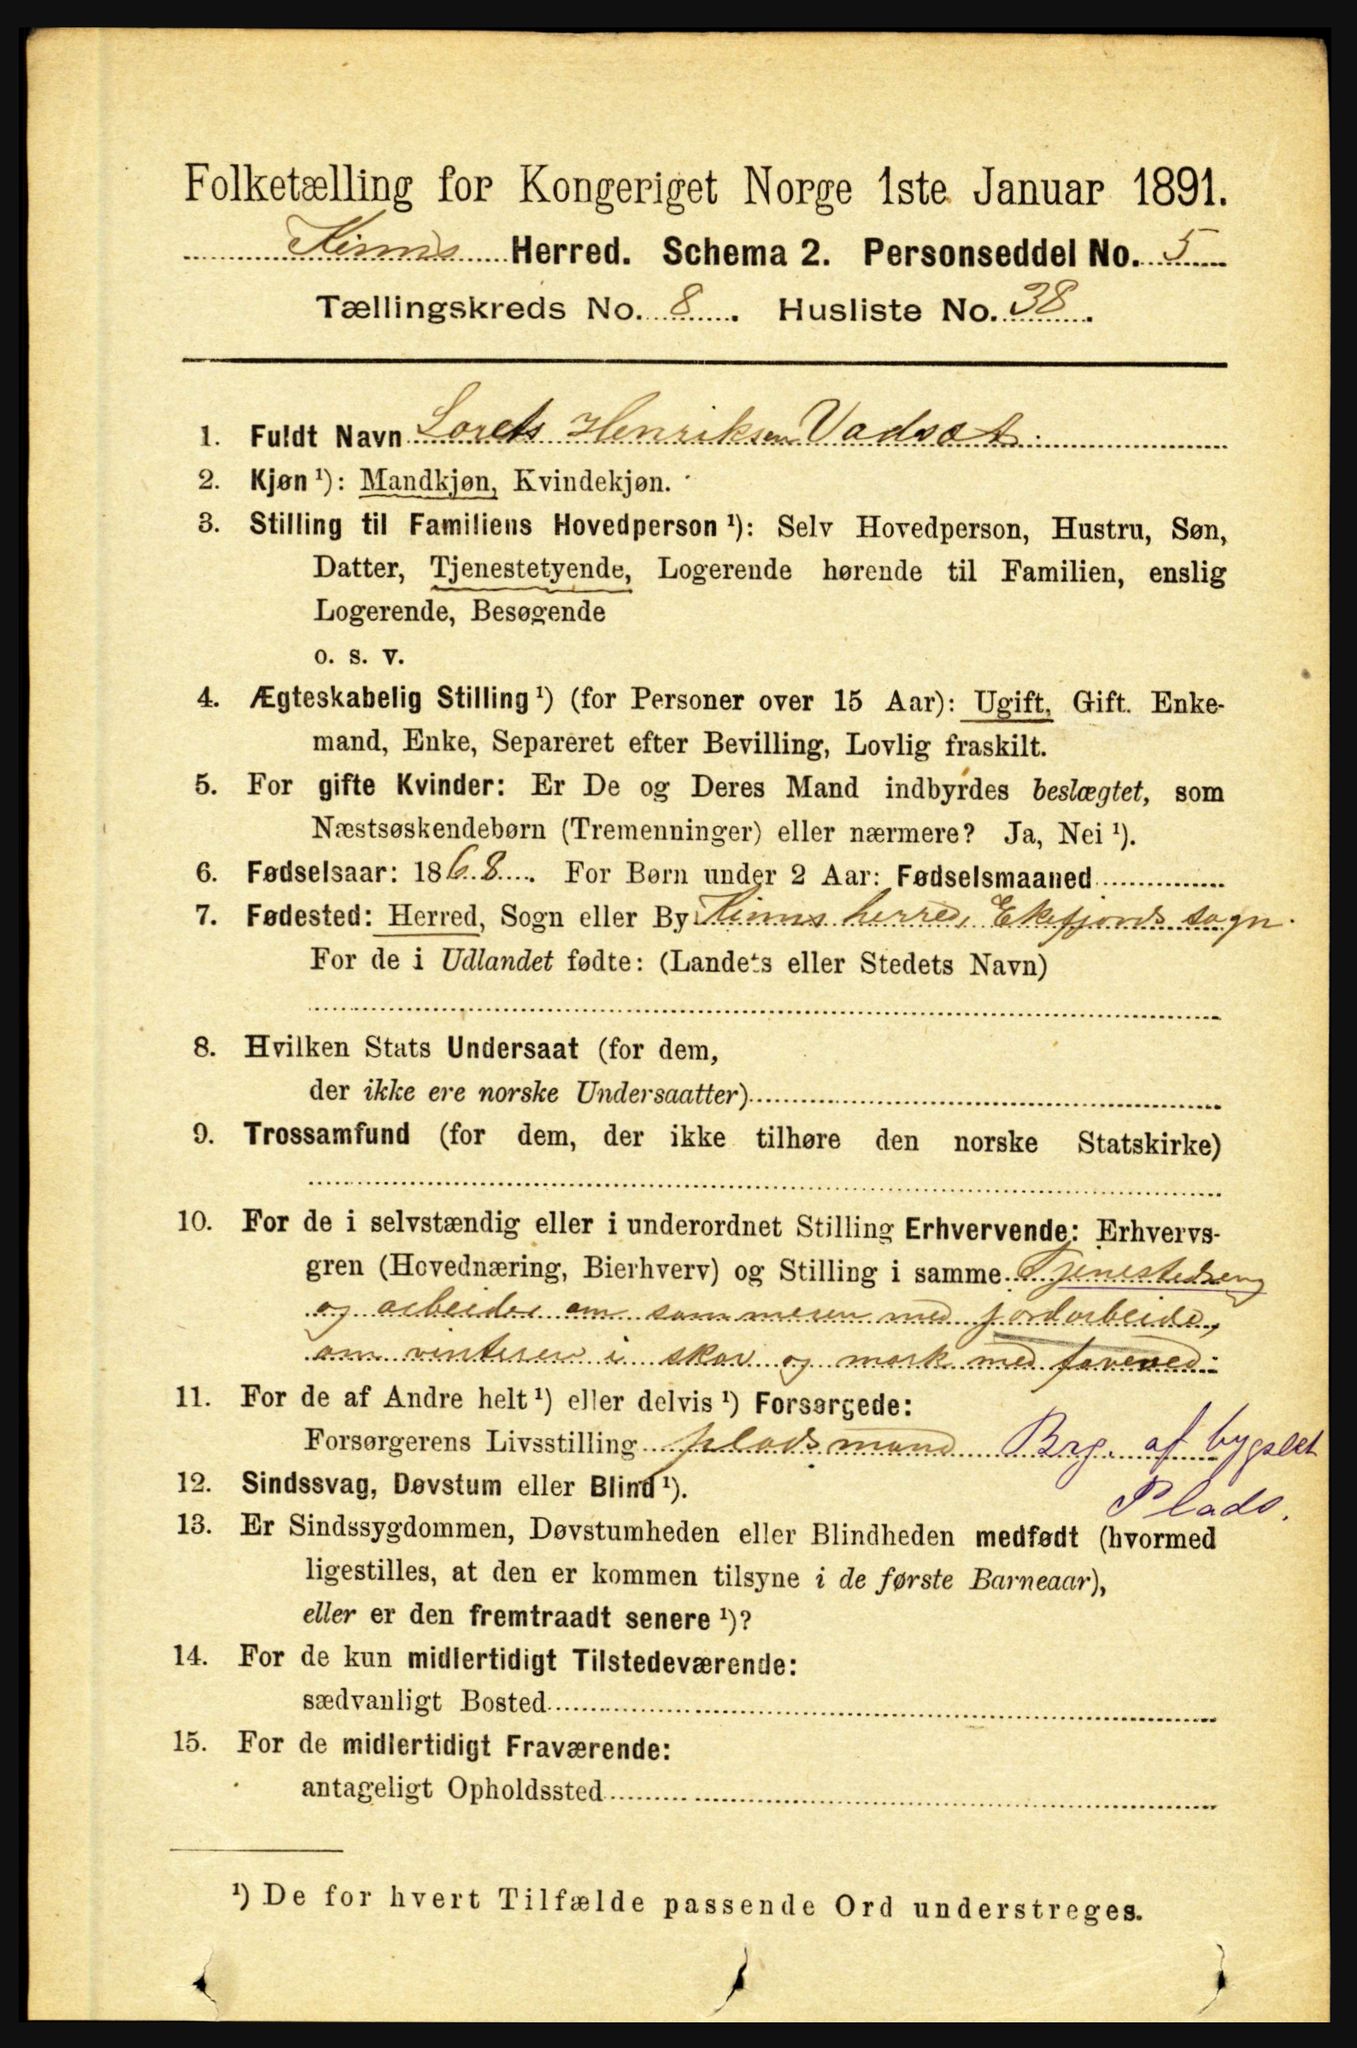 Folketælling for Kongeriget Norge 1ste Januar 1891.
Kinns Herred. Schema 2. Personseddel No. 5
Tællingskreds No. 8. Husliste No. 38.
1. Fuldt Navn Lorets Henriksen Vadsæt.
2. Kjøn ¹): Mandkjøn, Kvindekjøn.
3. Stilling til Familiens Hovedperson ¹): Selv Hovedperson, Hustru, Søn,
Datter, Tjenestetyende, Logerende hørende til Familien, enslig
Logerende, Besøgende
o. s. v.
4. Ægteskabelig Stilling ¹) (for Personer over 15 Aar): Ugift, Gift. Enke-
mand, Enke, Separeret efter Bevilling, Lovlig fraskilt.
5. For gifte Kvinder: Er De og Deres Mand indbyrdes beslægtet, som
Næstsøskendebørn (Tremenninger) eller nærmere? Ja, Nei ¹).
6. Fødselsaar: 1868. For Børn under 2 Aar: Fødselsmaaned
7. Fødested: Herred, Sogn eller By Kinns herred, Ekefjords sogn.
For de i Udlandet fødte: (Landets eller Stedets Navn)
8. Hvilken Stats Undersaat (for dem,
der ikke ere norske Undersaatter)
9. Trossamfund (for dem, der ikke tilhøre den norske Statskirke)
10. For de i selvstændig eller i underordnet Stilling Erhvervende: Erhvervs-
gren (Hovednæring, Bierhverv) og Stilling i samme Tjenestedreng
og arbeider om sommeren med jordarbeide,
om vinteren i skov og mark med
11. For de af Andre helt ¹) eller delvis ¹) Forsørgede:
Forsørgerens Livsstilling pladsmand Brg. af bygslet
Plads.
12. Sindssvag, Døvstum eller Blind ¹).
13. Er Sindssygdommen, Døvstumheden eller Blindheden medfødt (hvormed
ligestilles, at den er kommen tilsyne i de første Barneaar),
eller er den fremtraadt senere ¹)?
14. For de kun midlertidigt Tilstedeværende:
sædvanligt Bosted
15. For de midlertidigt Fraværende:
antageligt Opholdssted
¹) De for hvert Tilfælde passende Ord understreges.